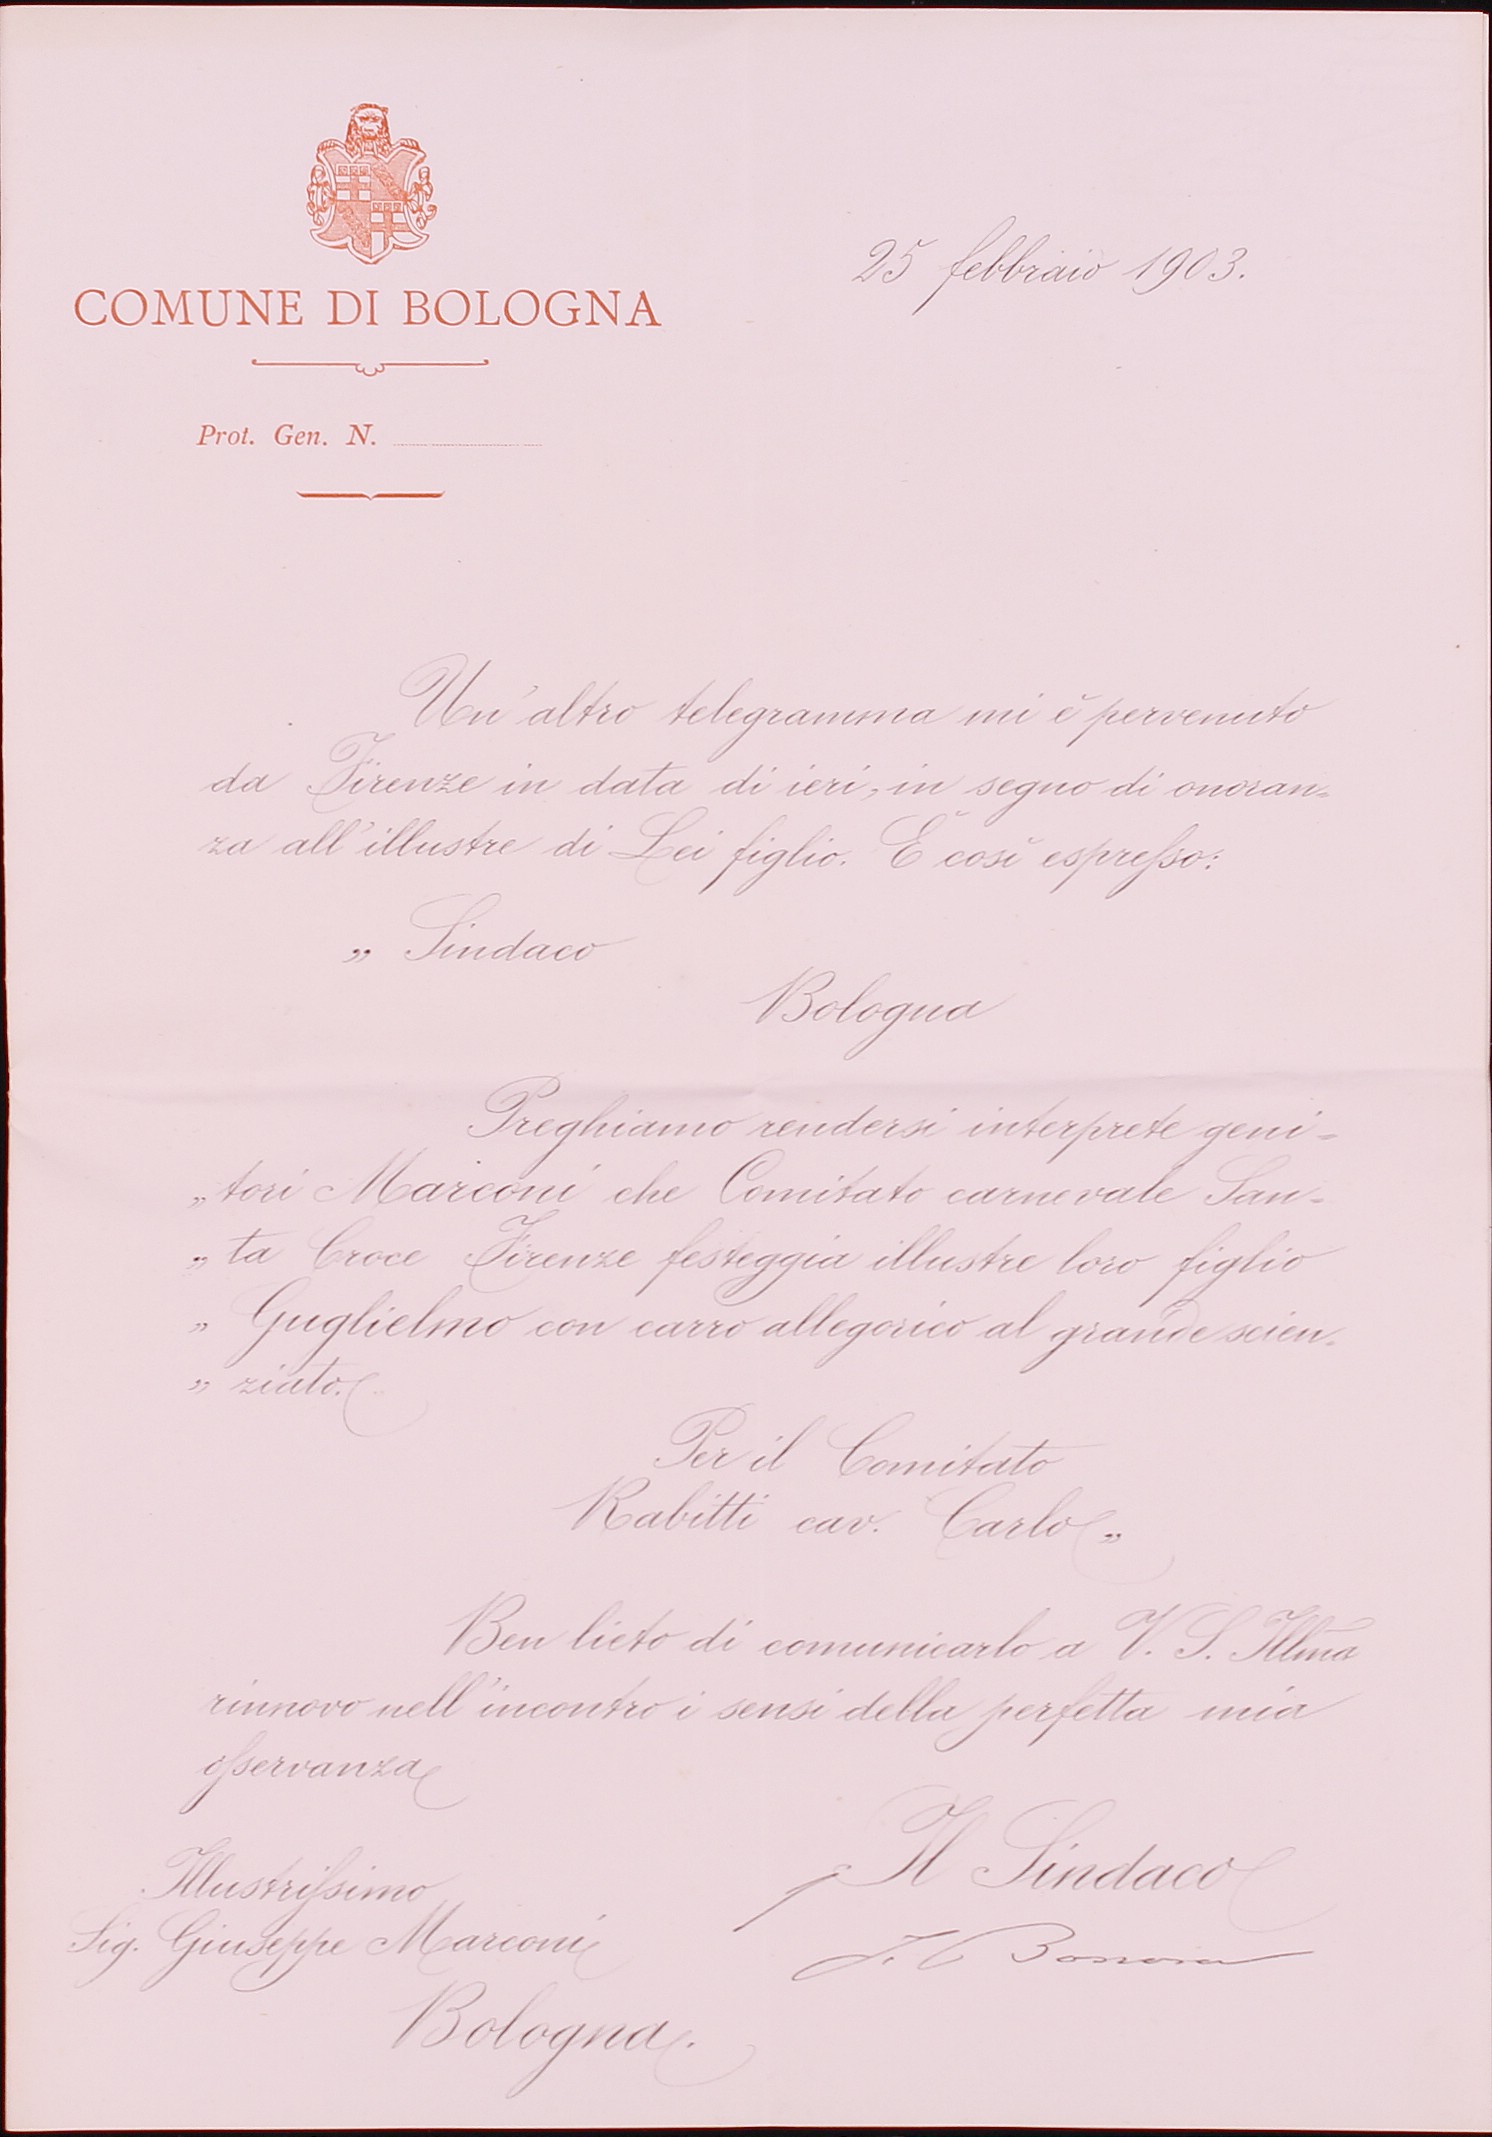 COMUNE DI BOLOGNA
25 febbraio 1903.
Prot. Gen. N.
Un'altro telegramma mi è pervenuto
da Firenze in data di ieri, in segno di onoran=
za all'illustre di Lei figlio. È così espresso:
„ Sindaco
Bologna
Preghiamo rendersi interprete geni=
„ tori Marconi che Comitato carnevale San=
„ ta Croce Firenze festeggia illustre loro figlio
„ Guglielmo con carro allegorico al grande scien=
„ ziato.
Per il Comitato
Rabitti cav. Carlo „
Ben lieto di comunicarlo a V. S. Illma
rinnovo nell'incontro i sensi della perfetta mia
osservanza
Il Sindaco
Illustrissimo
Sig. Giuseppe Marconi
Bologna.